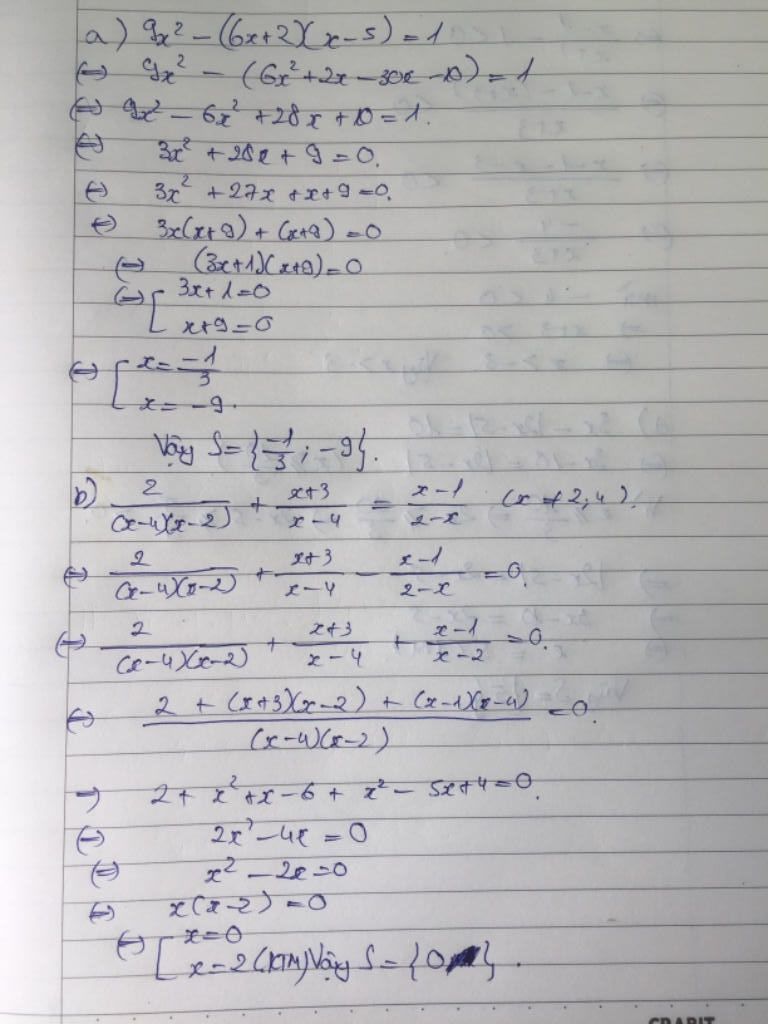 a) 9x² - (6x+2)(x-5) = 1
⇔ 9x² - (6x²+2x-30x-10) = 1
⇔ 9x² - 6x² + 28x + 10 = 1.
⇔ 3x² + 28x + 9 = 0.
⇔ 3x² + 27x + x + 9 = 0.
⇔ 3x(x+9) + (x+9) = 0
⇔ (3x+1)(x+9) = 0
⇔ [ 3x+1=0
x+9=0
⇔ [ x = -1/3
x = -9.
Vậy S = {-1/3; -9}.
b) 2/((x-4)(x-2)) + (x+3)/(x-4) = (x-1)/(2-x) (x ≠ 2; 4).
⇔ 2/((x-4)(x-2)) + (x+3)/(x-4) - (x-1)/(2-x) = 0.
⇔ 2/((x-4)(x-2)) + (x+3)/(x-4) + (x-1)/(x-2) = 0.
⇔ (2 + (x+3)(x-2) + (x-1)(x-4))/((x-4)(x-2)) = 0.
⇒ 2 + x² + x - 6 + x² - 5x + 4 = 0.
⇔ 2x² - 4x = 0
⇔ x² - 2x = 0
⇔ x(x-2) = 0
⇔ [ x = 0
x = 2 (KTM) Vậy S = {0}.